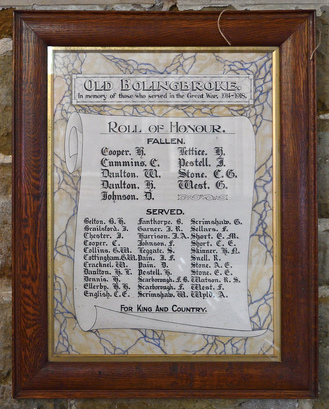 OLD BOLINGBROKE.
In memory of those who served in the Great War, 1914-1918.
ROLL OF HONOUR.
FALLEN.
Cooper. H. Lettice. H.
Cummins. C. Pestell. J.
Daulton. W. Stone. C. G.
Daulton. H. West. G.
Johnson. D.
SERVED.
Belton. B. H. Fanthorpe. B. Scrimshaw. G.
Brailsford. J. Garner. J. R. Sellars. F.
Chester. J. Harrison. J. A. Short. E. M.
Cooper. C. Johnson. F. Short. C. E.
Collins. G. W. Leggate. S. Skinner. H. N.
Cottingham. G. W. Pain. J. F. Snell. R.
Cracknel. W. Pain. D. Stone. A. E.
Daulton. H. L. Pestell. H. Stone. E. E.
Dennis. H. Scarborough. F. B. Watson. R. S.
Ellerby. H. H. Scarborough. F. West. F.
English. C. E. Scrimshaw. W. A.
FOR KING AND COUNTRY.